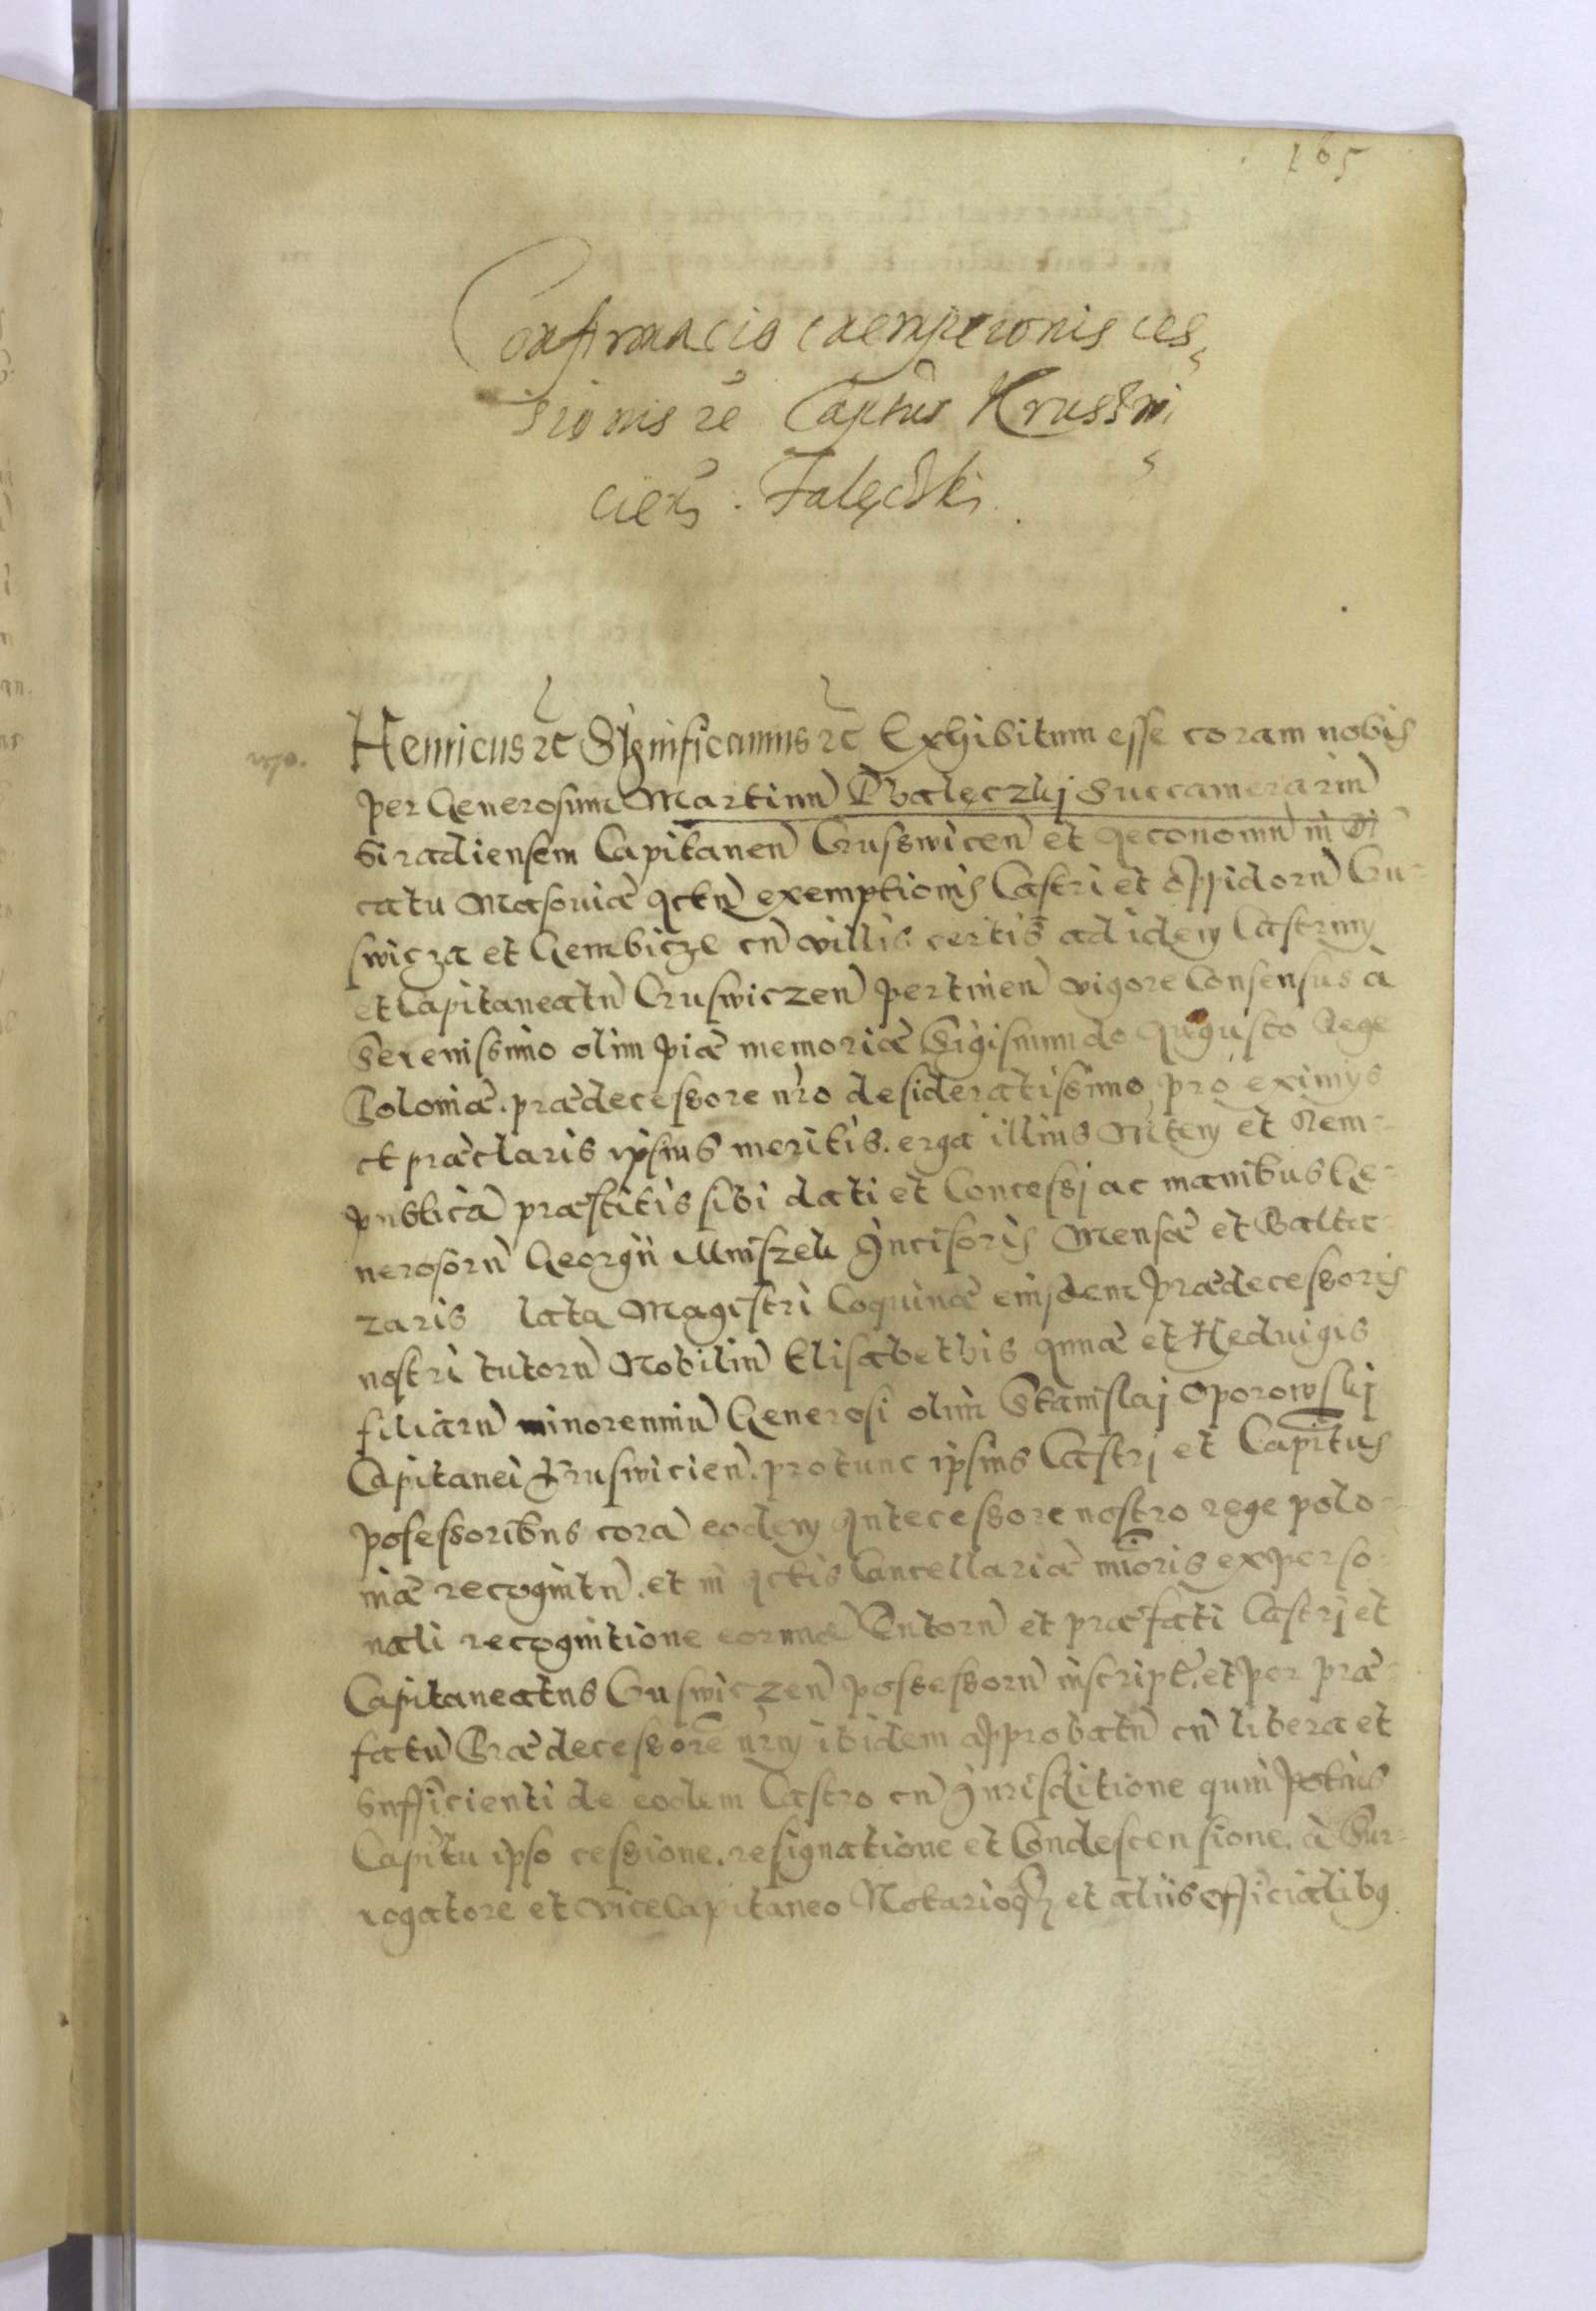 165
Confirmacio exempcionis ces,
sionis etc Captus Krusswi,
cien: Falęcski.
Henricus etc Significamus etc Exhibitum esse coram nobis
per Generosum Martinū Phalęczkj Succamerariū
Siradiensem Capitaneū Crusswicen̄ et Oeconomū in Du
catu Masouiæ Actū exemptionis Castri et oppidorū Cru-
swicza et Gembicze cū villis certis ad idem Castrum
et Capitaneatū Cruswiczen̄ pertinen̄ vigore Consensus à
Serenissimo olim piæ memoriæ Sigismundo Augusto Rege
Poloniæ. prædecessore nro desideratissimo, pro eximijs
et præclaris ipsius meritis. erga illius Mtem et Rem-
publicā præstitis sibi dati et Concessj ac manibus Ge-
nerosorū Georgii Mniszek Incisoris Mensæ et Balta-
zaris Lata Magistri Coquinæ eiusdem Prædecessoris
nostri tutorū Nobiliū Elisabethis Annæ et Heduigis
filiarū minorenniū Generosi olim Stanislaj Oporowskj
Capitanei Kruswicien̄. protunc ipsius Castrj et Capitus
posessoribus corā eodem Antecessore nostro rege polo-
niæ recognitū. et in Actis Cancellariæ mioris ex perso-
nali recognitione eorundē Tutorū et præfati Castrj et
Capitaneatus Cruswiczen̄ possessorū inscript. et per præ-
fatū Prædecessorē nrm ibidem approbatū cū libera et
Sufficienti de eodem Castro cū Iurisditione quin potius
Capitu ipso cessione. resignatione et Condescensione. à Sur-
rogatore et vicecapitaneo Notarioq3 et aliis officialibus